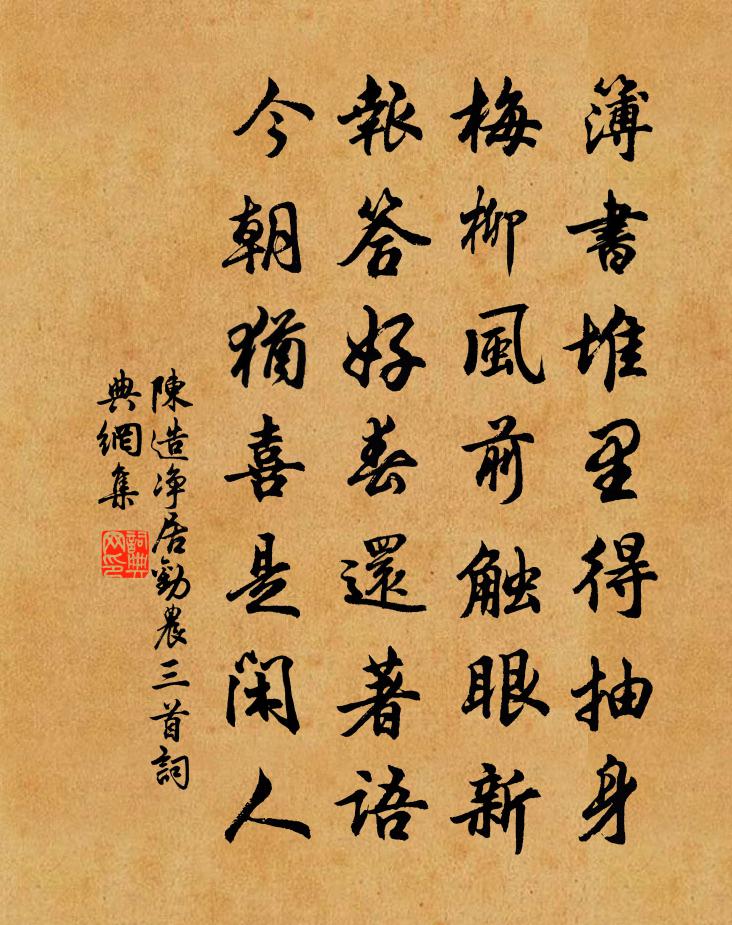 簿書堆里得抽身
梅柳風前触眼新
報答好春還著語
今朝猶喜是闲人
陳造净居勸農三首詞
典網集
詞典
网印